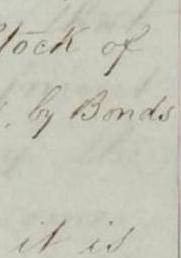 tock of
, by Bonds
it is